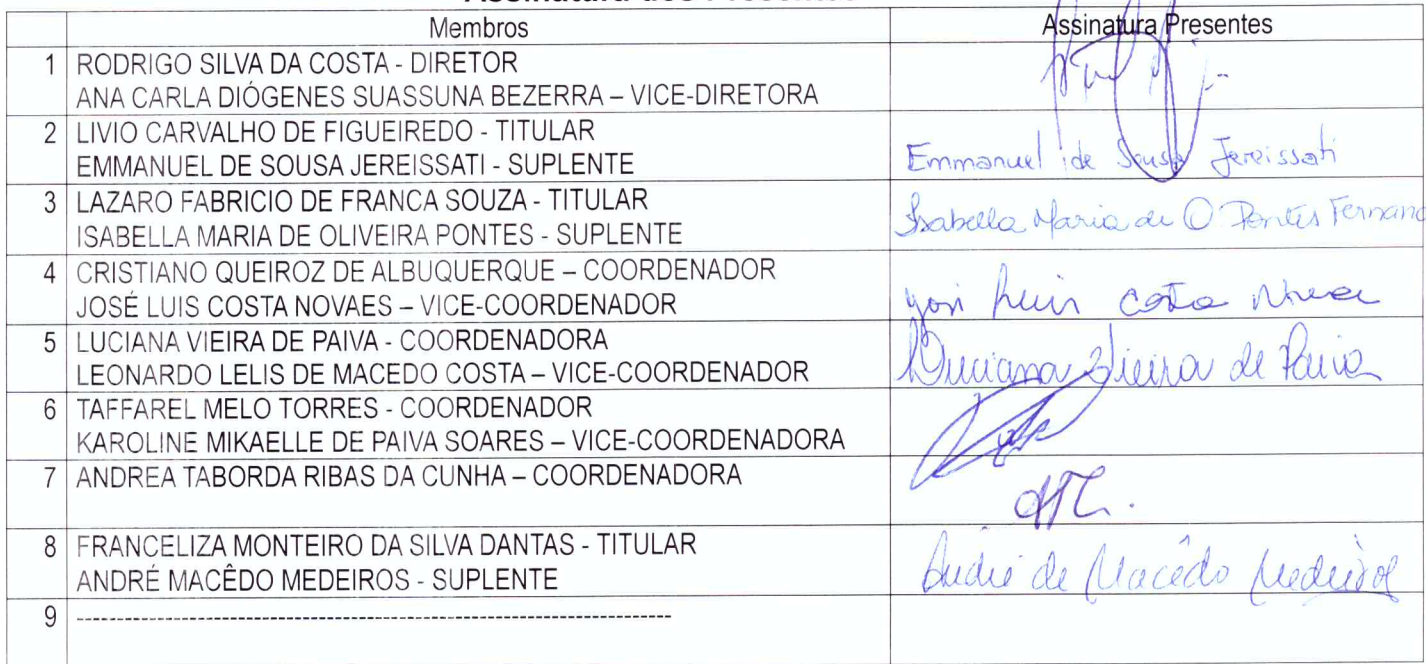 Membros Assinatura Presentes
1 RODRIGO SILVA DA COSTA - DIRETOR
ANA CARLA DIÓGENES SUASSUNA BEZERRA – VICE-DIRETORA
2 LIVIO CARVALHO DE FIGUEIREDO - TITULAR
EMMANUEL DE SOUSA JEREISSATI - SUPLENTE Emmanuel de Sousa Jereissati
3 LAZARO FABRICIO DE FRANCA SOUZA - TITULAR
ISABELLA MARIA DE OLIVEIRA PONTES - SUPLENTE Isabella Maria de O Pontes Fernand
4 CRISTIANO QUEIROZ DE ALBUQUERQUE – COORDENADOR
JOSÉ LUIS COSTA NOVAES – VICE-COORDENADOR José Luis Costa Novaes
5 LUCIANA VIEIRA DE PAIVA - COORDENADORA
LEONARDO LELIS DE MACEDO COSTA – VICE-COORDENADOR Luciana Vieira de Paiva
6 TAFFAREL MELO TORRES - COORDENADOR
KAROLINE MIKAELLE DE PAIVA SOARES – VICE-COORDENADORA
7 ANDREA TABORDA RIBAS DA CUNHA – COORDENADORA
8 FRANCELIZA MONTEIRO DA SILVA DANTAS - TITULAR
ANDRÉ MACÊDO MEDEIROS - SUPLENTE André de Macêdo Medeiros
9 ------------------------------------------------------------------------